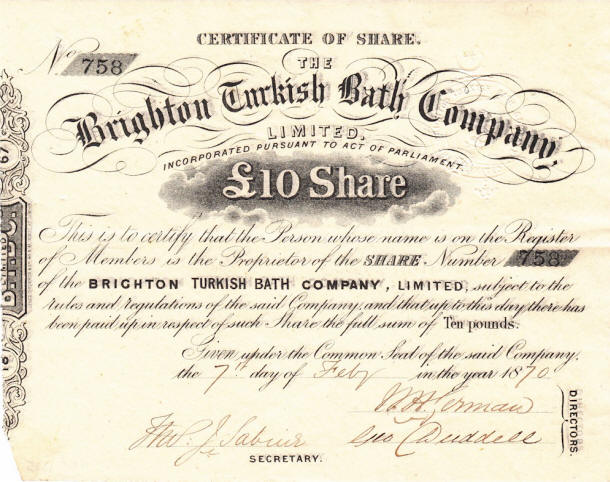 CERTIFICATE OF SHARE.
No 758
THE
Brighton Turkish Bath Company,
LIMITED,
INCORPORATED PURSUANT TO ACT OF PARLIAMENT.
£10 Share
This is to certify that the Person whose name is on the Register
of Members is the Proprietor of the SHARE Number 758
of the BRIGHTON TURKISH BATH COMPANY, LIMITED, subject to the
rules and regulations of the said Company, and that up to this day there has
been paid up in respect of such Share the full sum of Ten pounds.
Given under the Common Seal of the said Company,
the 7th day of Feby in the year 1870.
Geo Duddell
DIRECTORS.
J. Sabine
SECRETARY.